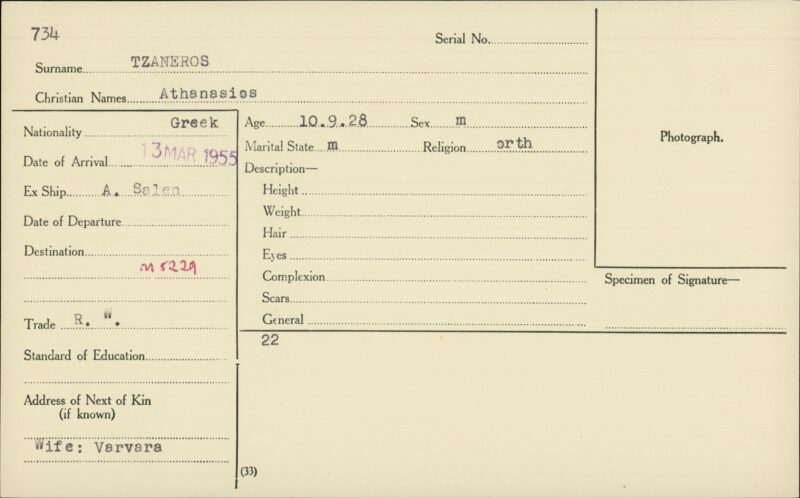 734
Serial No.
Surname TZANEROS
Christian Names Athanasios
Nationality Greek
Date of Arrival 13 MAR 1955
Ex Ship A. Salen
Date of Departure
Destination
M 5229
Trade R. W.
Standard of Education
Address of Next of Kin
(if known)
Wife: Varvara
Age 10.9.28 Sex m
Marital State m Religion orth
Description—
Height
Weight
Hair
Eyes
Complexion
Scars
General
22
(33)
Photograph.
Specimen of Signature—